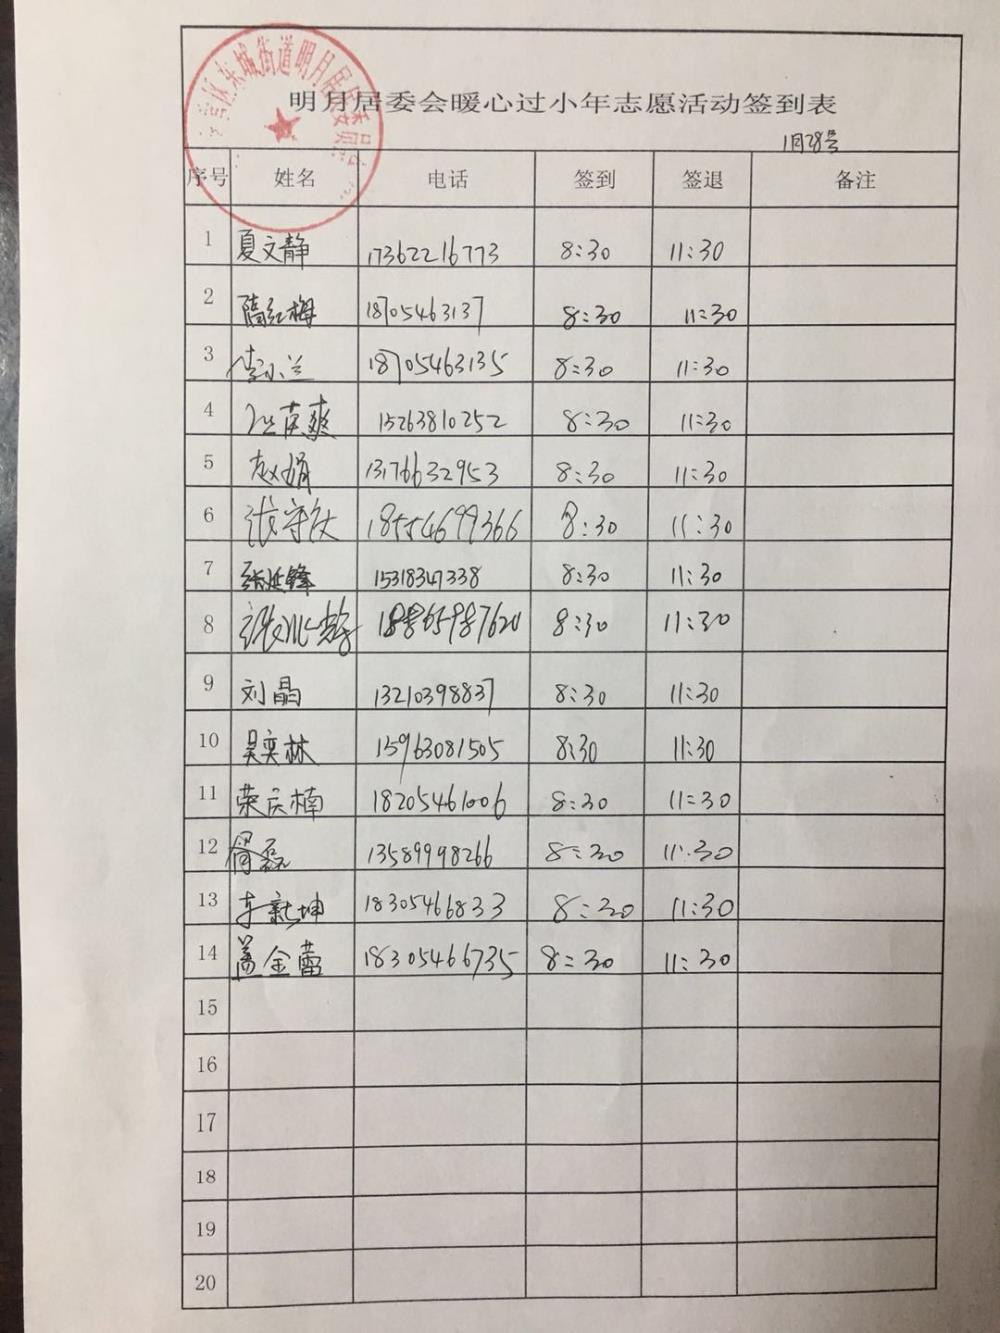 东城街道明月居民委员会
明月居委会暖心过小年志愿活动签到表
1月28号
序号 姓名 电话 签到 签退 备注
1 夏文静 17362216773 8:30 11:30
2 隋红梅 18705463137 8:30 11:30
3 李小兰 18705463135 8:30 11:30
4 英爽 15263810252 8:30 11:30
5 赵娟 13176632953 8:30 11:30
6 张守 18554699366 8:30 11:30
7 张延锋 15318347338 8:30 11:30
8 张 8:30 11:30
9 刘晶 13210398837 8:30 11:30
10 吴奕林 15963081505 8:30 11:30
11 荣庆楠 18205461006 8:30 11:30
12 胥磊 13589998266 8:30 11:30
13 车新坤 18305466833 8:30 11:30
14 盖金蕾 18305466735 8:30 11:30
15
16
17
18
19
20